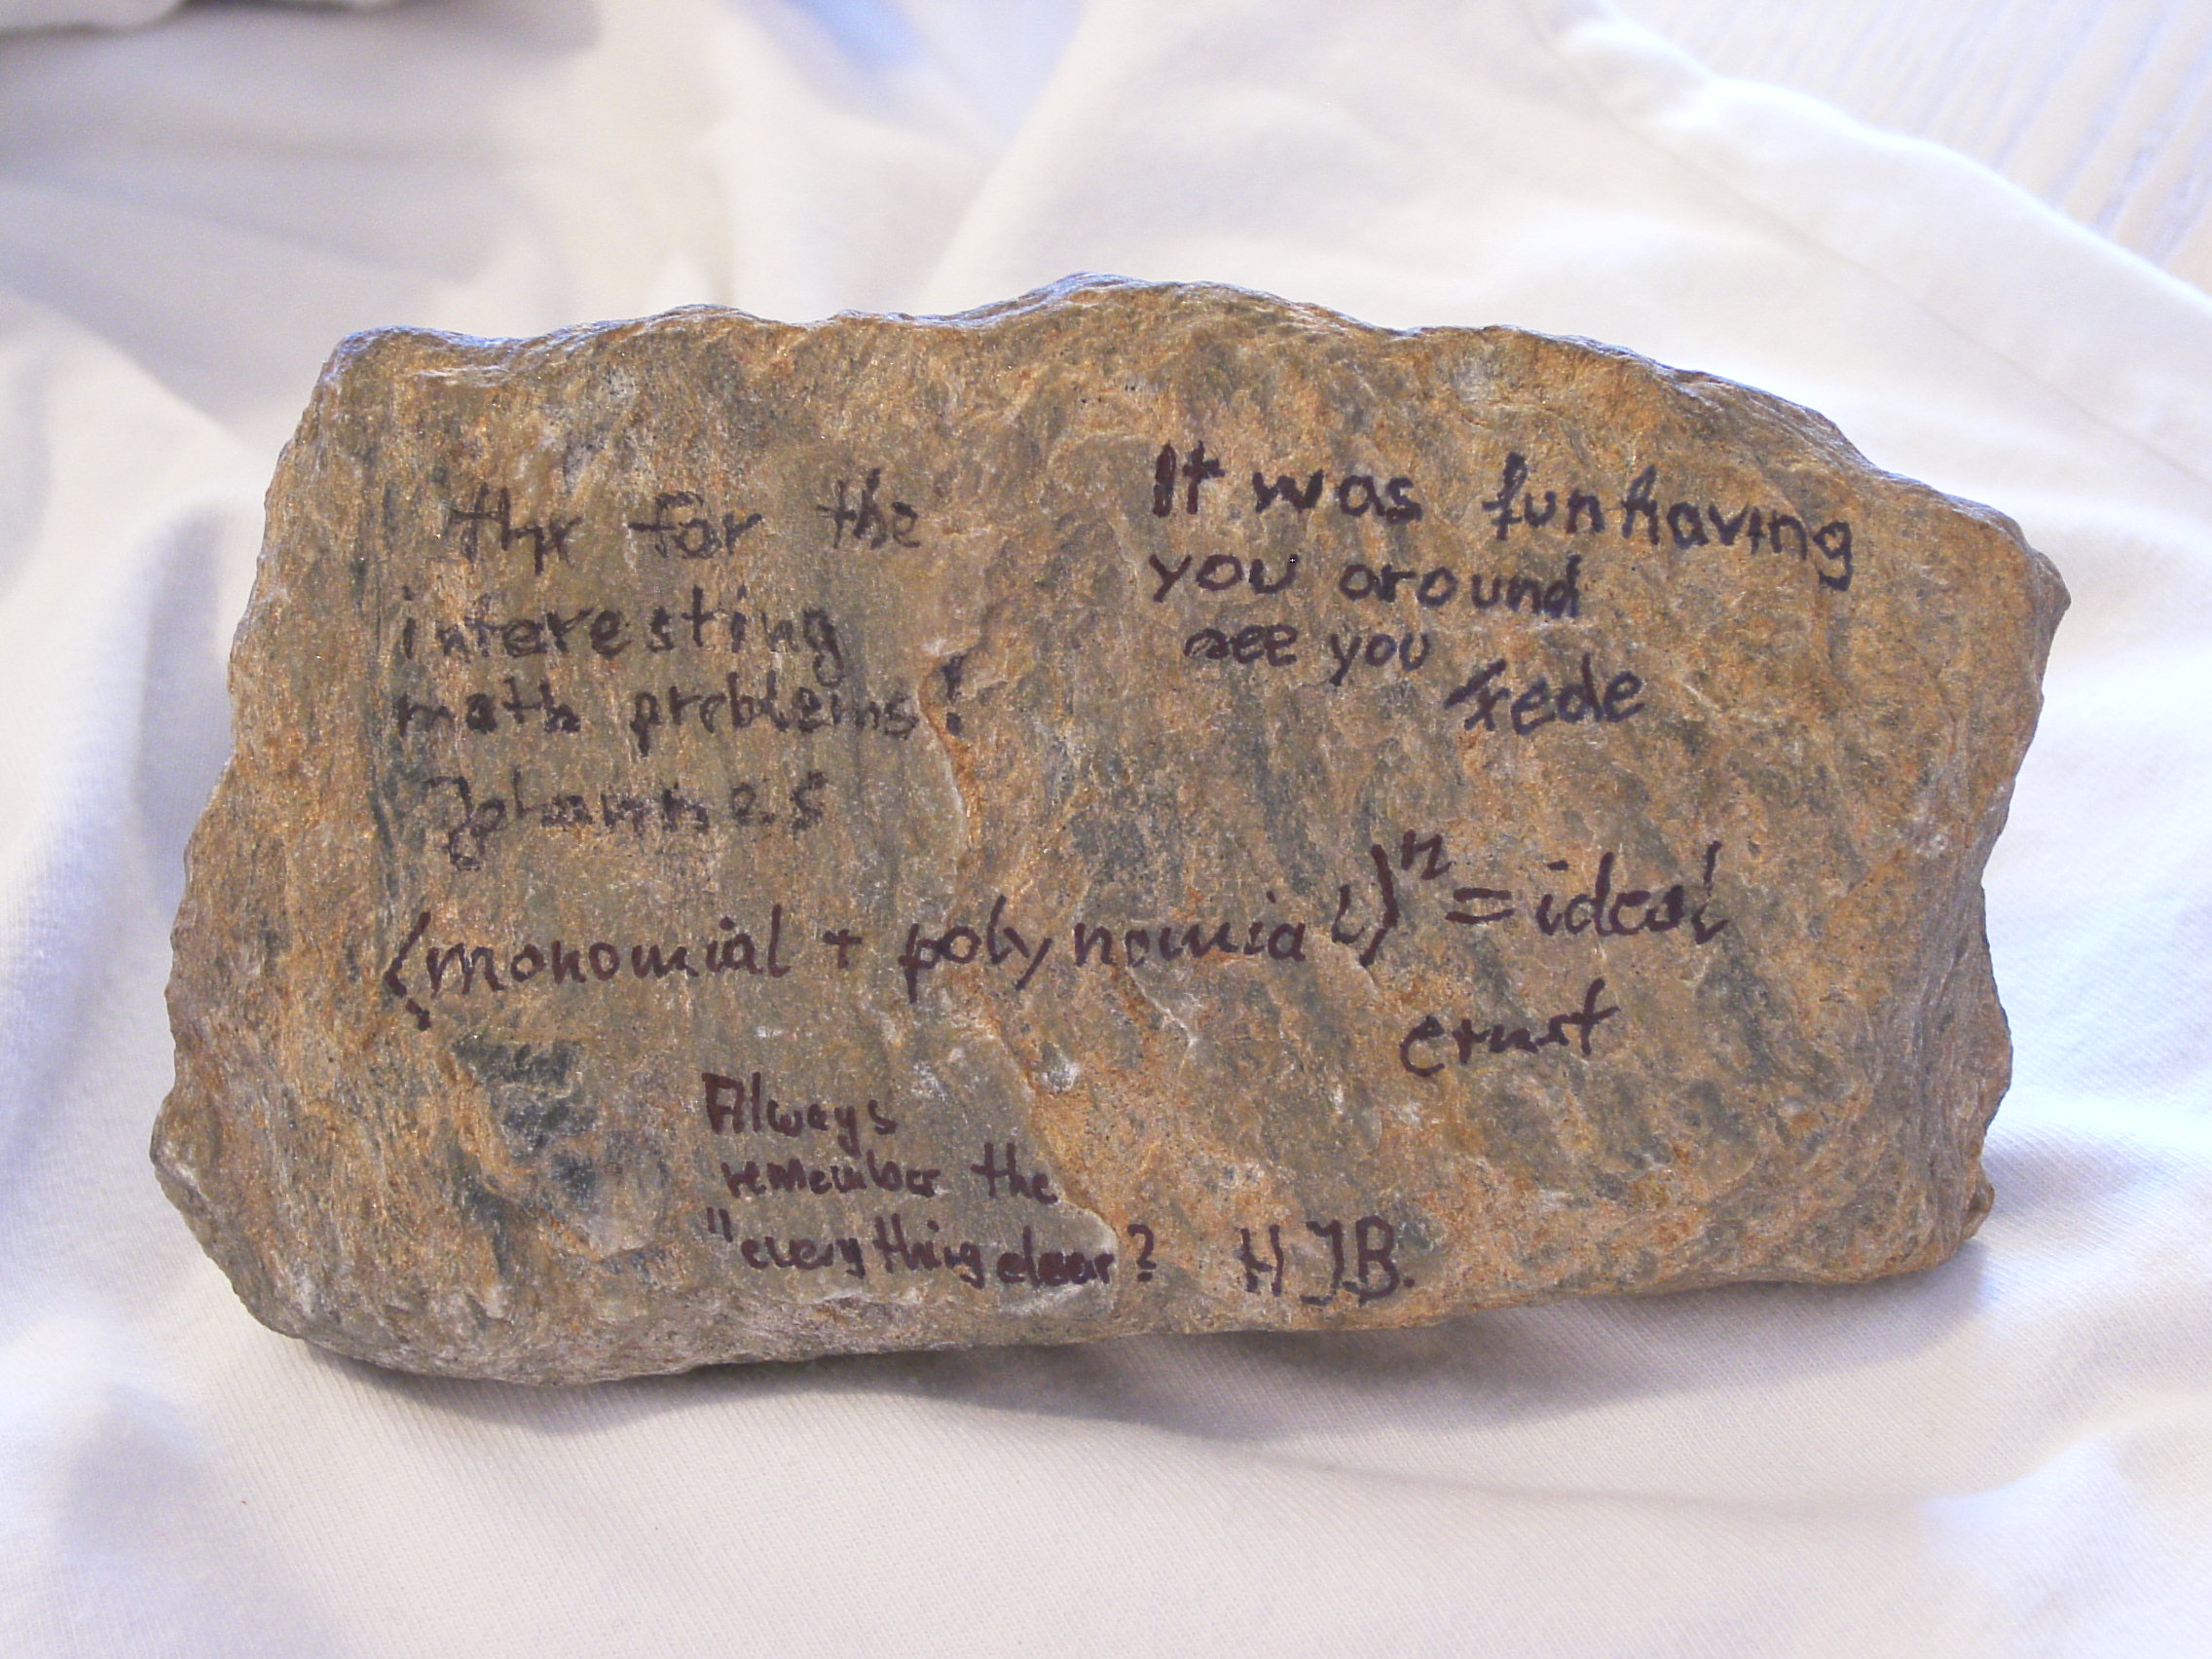 thx for the
interesting
math problems!
Johannes
It was fun having
you around
see you
Fede
(monomial + polynomial)ⁿ = ideal
ernst
Always
remember the
"everything clear? HJB.